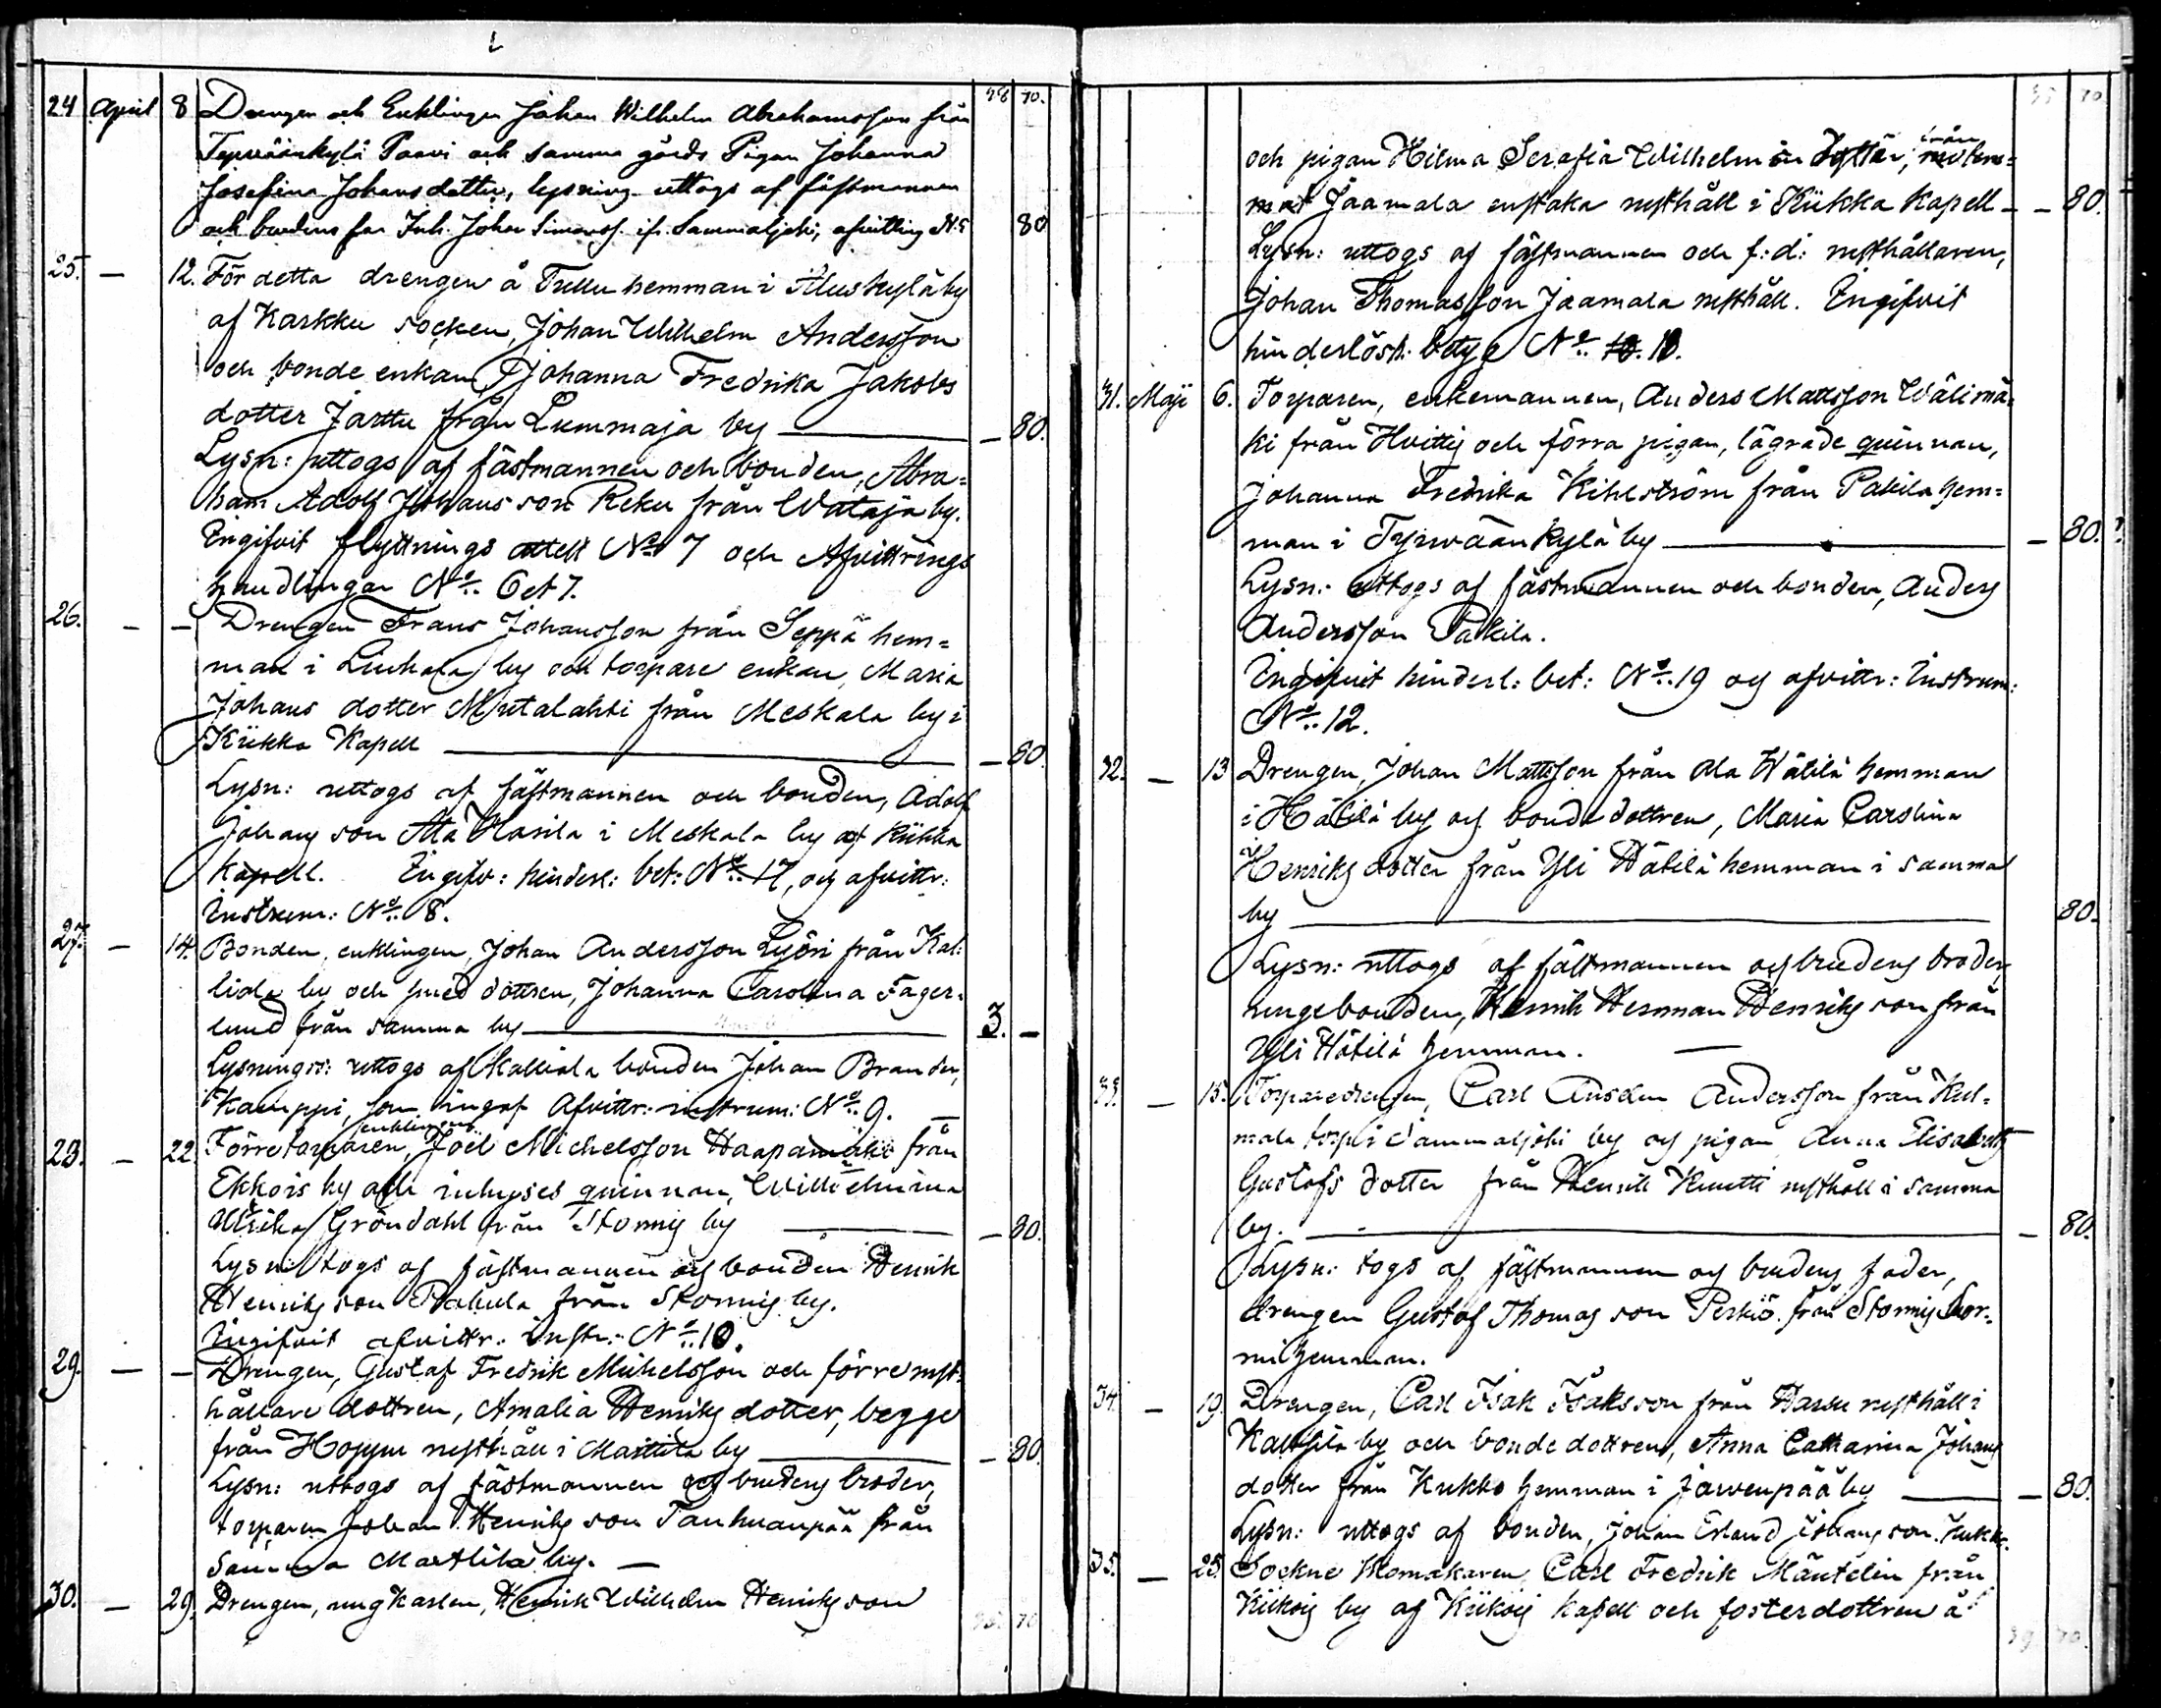 24 April 8 Drengen och Enklingen Johan Wilhelm Abrahamsson från 38 70.
Tyrväänkylä Paavi och samma gårds Pigan Johanna
Josefina Johansdotter, lysning uttogs af fästmannen
och brudens far Inh. Johan Simonss. ifr. Sammaljoki, afvittring N:5 80
25. — 12. För detta drengen å Trullu hemman i Aluskylä by
af Karkku socken, Johan Wilhelm Andersson
och bonde enkan, Johanna Fredrika Jakobs
dotter Jarttu från Lummaja by — 80.
Lysn: uttogs af fästmannen och bonden, Abra=
ham Adolf Johansson Reku från Wataja by.
Ingifvit flyttnings attest No. 7 och Afvittrings
handlingar No. 6 et 7.
26. — — Drengen Frans Johansson från Seppä hem=
man i Liuhala by och torpare enkan, Maria
Johans dotter Mutalahti från Meskala by i
Kiikka Kapell — 80.
Lysn: uttogs af fästmannen och bonden, Adolf
Johansson Ala Hasila i Meskala by af Kiikka
Kapell. Ingifv: hinderl: bet: No. 17, och afvittr:
Instrum: No. 8.
27. — 14. Bonden, enklingen, Johan Andersson Lyöri från Kal=
liala by och smed dottren, Johanna Carolina Fager=
lund från samma by 3. —
Lysningss: uttogs af Kalliala bonden Johan Brander,
Kamppi, som ingaf Afvittr: instrum: No. 9. —
28. — 22 Förre torparen, enklingen Joël Michelsson Haapamäki från
Ekkois by och inhyses quinnan, Wilhelmina
Ulrika Gröndahl från Stormis by — 80.
Lysn: togs af fästmannen och bonden Henrik
Henriksson Pakula från Stormis by.
Ingifvit afvittr: Instr: No. 10.
29. — — Drengen, Gustaf Fredrik Michelsson och förre rust=
hållare dottren, Amalia Henriks dotter, begge
från Hoppu rusthåll i Marttila by — 80.
Lysn: uttogs af fästmannen och brudens broder,
torparen Johan Henriksson Tanhuanpää från
samma Marttila by. —
30. — 29. Drengen, ungkarlen, Henrik Wilhelm Henriksson
35 70
och pigan Hilma Serafia Wilhelms dotter, från
Jaamala enstaka rusthåll i Kiikka Kapell — — 80.
Lysn: uttogs af fästmannen och f:d: rusthållaren,
Johan Thomasson Jaamala rusthåll. Ingifvit
hinderlösh: betyg No. 18.
31. Maji 6. Torparen, enkemannen, Anders Mattsson Wälimä=
ki från Hvittis och förra pigan, lägrade quinnan,
Johanna Fredrika Kihlström från Pakila hem=
man i Tyrwäänkylä by — 80. ?
Lysn: uttogs af fästmannen och bonden, Anders
Andersson Pakila.
Ingifvit hinderl: bet: No. 19 och afvittr: Instrum:
No. 12.
32. — 13 Drengen, Johan Mattsson från Ala Hätilä hemman
i Hätilä by och bonde dottren, Maria Carolina
Henriks dotter från Yli Hätilä hemman i samma
by 80.
Lysn: uttogs af fästmannen och brudens broder,
unge bonden, Henrik Herman Henriksson från
Yli Hätilä hemman. —
33. — 15. Torparedrengen, Carl Anselm Andersson från Kul=
mala torp i Sammaljoki by och pigan Anna Elisabeth
Gustafs dotter från Henrik Knuutti rusthåll i samma
by. — 80.
Lysn: togs af fästmannen och brudens fader,
drengen Gustaf Thomasson Perkiö från Stormis Stor=
mi hemman.
34. — 19. Drengen, Carl Isak Isaksson från Hassu rusthåll i
Kaltsila by och bonde dottren, Anna Catharina Johans
dotter från Kukko hemman i Jarvenpää by — 80.
Lysn: uttogs af bonden, Johan Erland Johansson Kukko.
35. — 25. Sockne skomakaren, Carl Fredrik Mäntelin från
Kiikois by af Kiikois kapell och fosterdottren å